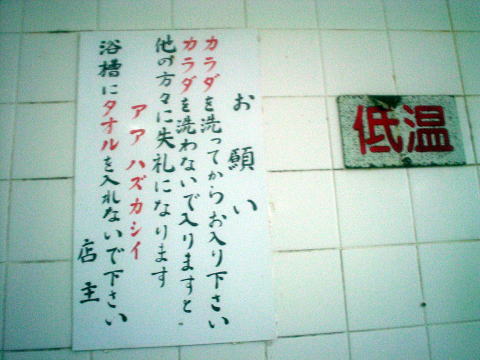 お願い
カラダを洗ってからお入り下さい
カラダを洗わないで入りますと
他の方々に失礼になります
アアハズカシイ
浴槽にタオルを入れないで下さい
店主
低温